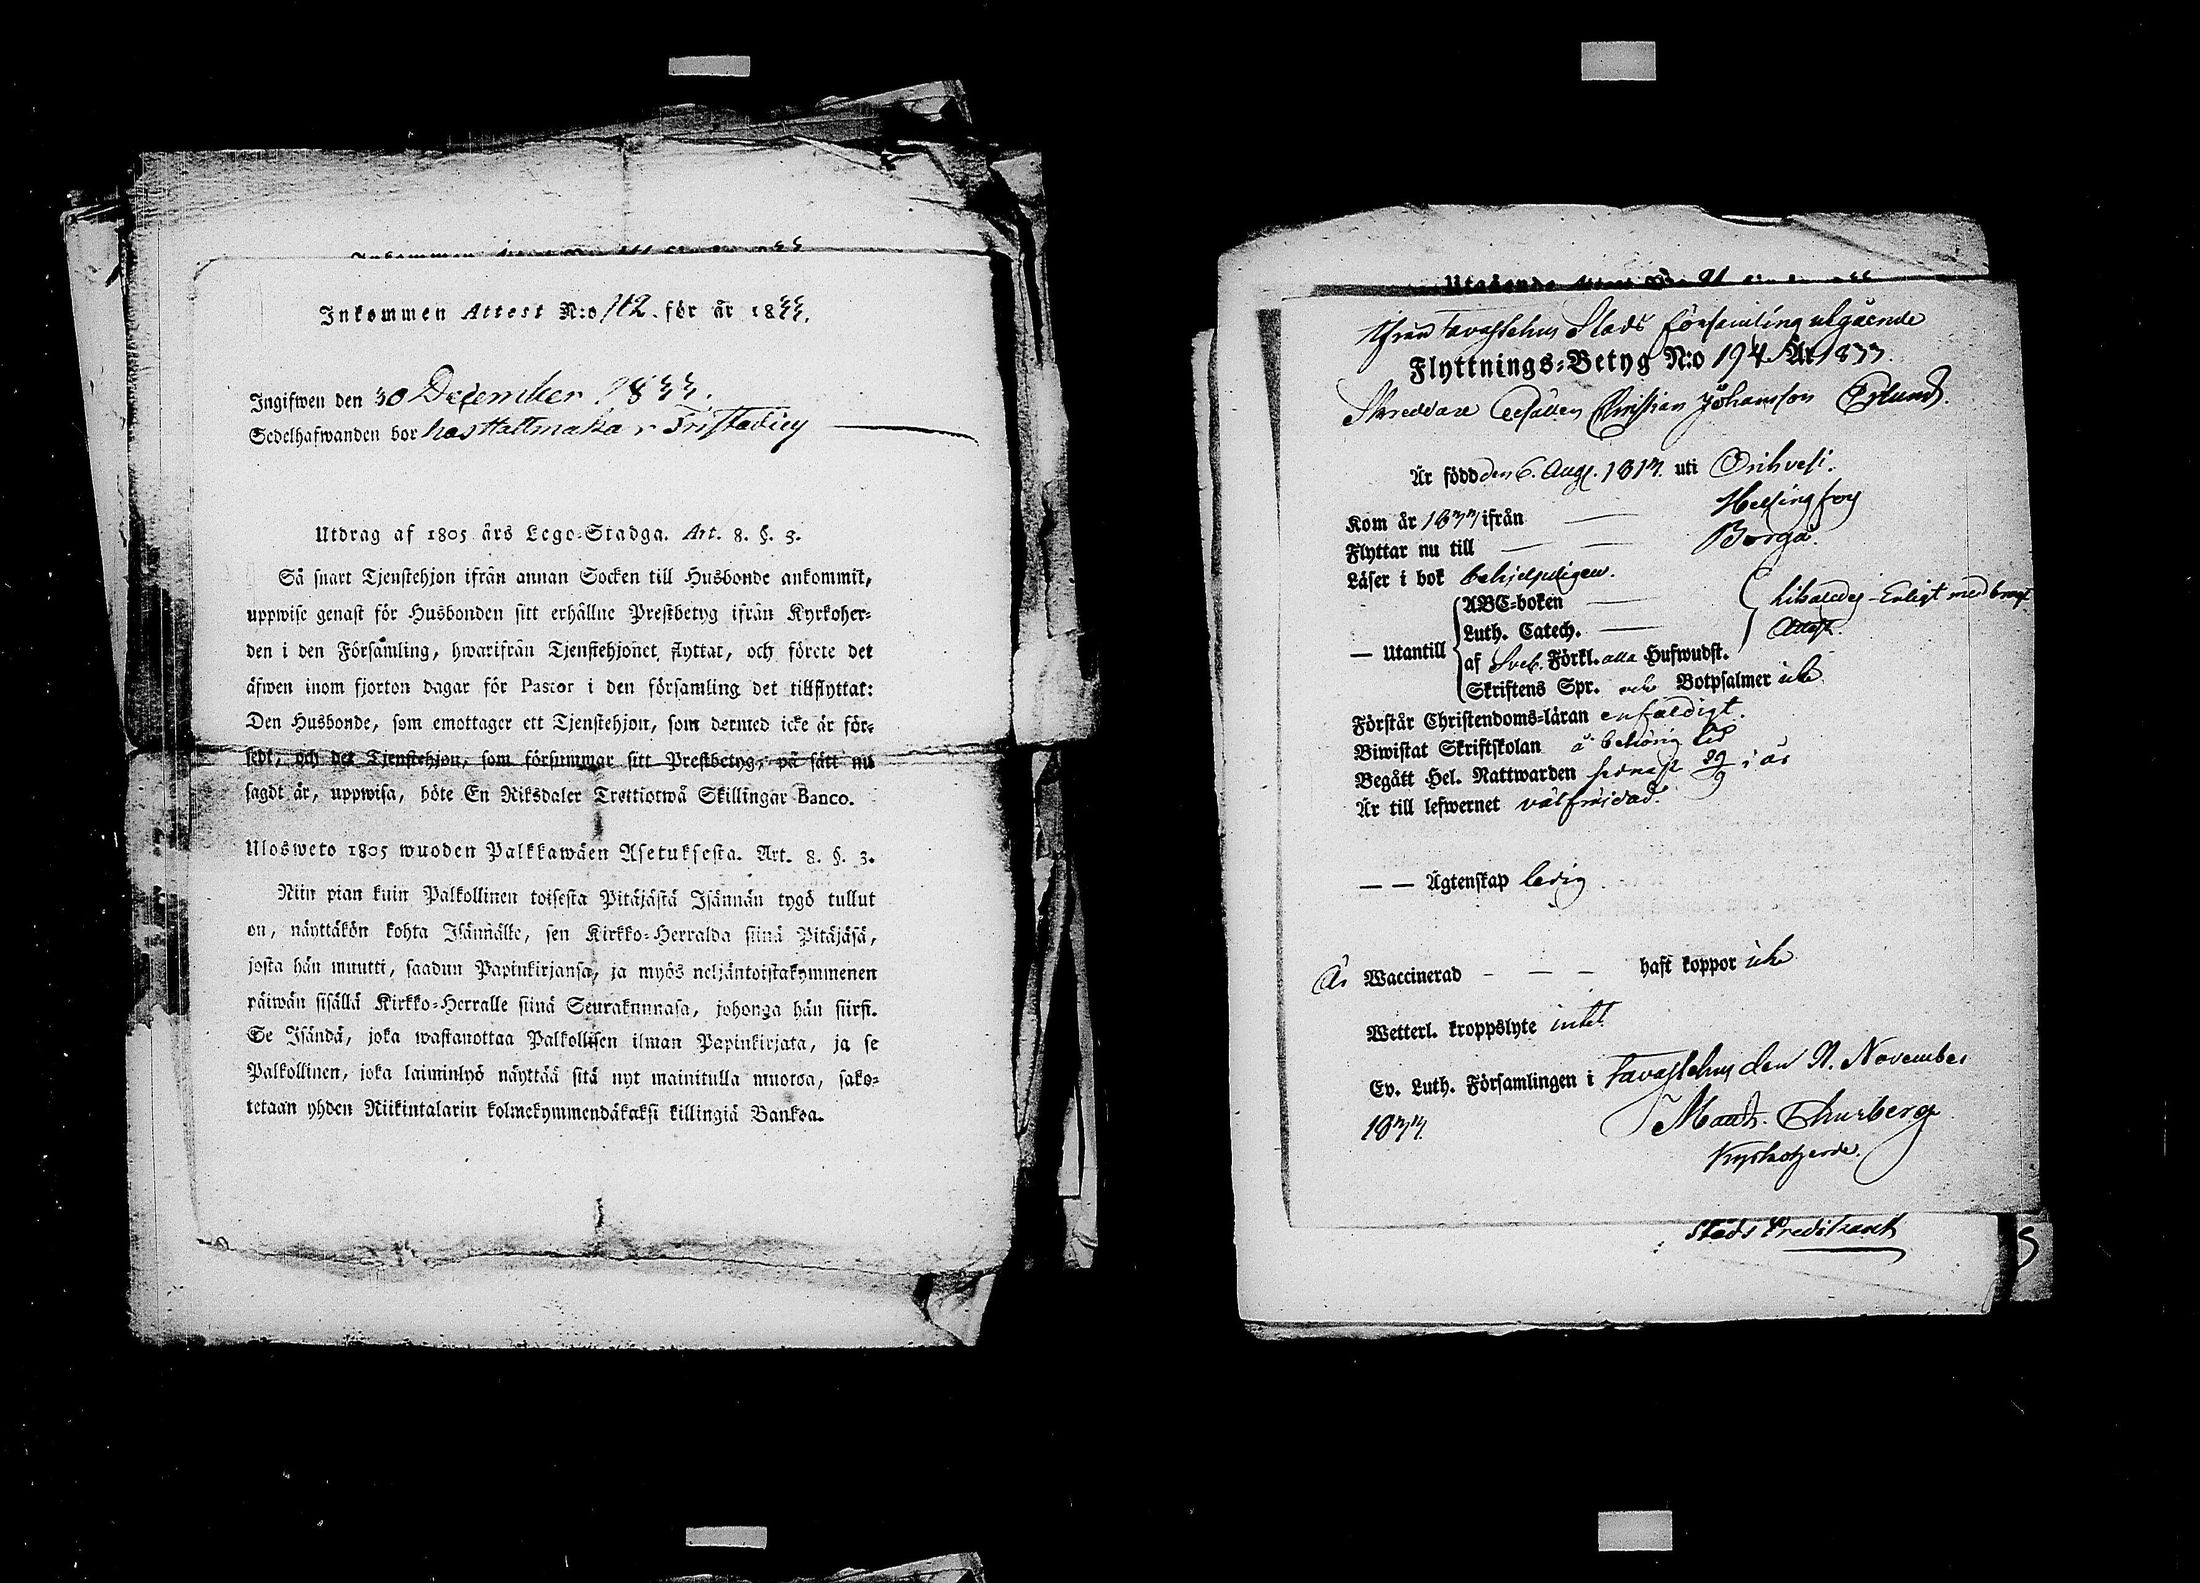 Inkommen Attest N:o 112. för år 1833.
Ingifwen den 30 December 1833.
Sedelhafwanden bor hos Hattmakar
Utdrag af 1805 års Lego-Stadga. Art. 8. §. 3.
Så snart Tjenstehjon ifrån annan Socken till Husbonde ankommit,
uppwise genast för Husbonden sitt erhållne Prestbetyg ifrån Kyrkoher-
den i den Församling, hwarifrån Tjenstehjonet flyttat, och förete det
äfwen inom fjorton dagar för Pastor i den församling det tillflyttat:
Den Husbonde, som emottager ett Tjenstehjon, som dermed icke är för-
sedt, och det Tjenstehjon, som försummar sitt Prestbetyg, på sätt nu
sagdt är, uppwisa, böte En Riksdaler Trettiotwå Skillingar Banco.
Ulosweto 1805 wuoden Palkkawäen Asetuksesta. Art. 8. §. 3.
Niin pian kuin Palkollinen toisesta Pitäjästä Isännän tygö tullut
on, näyttäkön kohta Isännälle, sen Kirkko-Herralda siinä Pitäjäsä,
josta hän muutti, saadun Papinkirjansa, ja myös neljäntoistakymmenen
päiwän sisällä Kirkko-Herralle siinä Seurakunnasa, johonga hän siirsi.
Se Isändä, joka wastanottaa Palkollisen ilman Papinkirjata, ja se
Palkollinen, joka laiminlyö näyttää sitä nyt mainitulla muotoa, sako-
tetaan yhden Riikintalarin kolmekymmendäkaksi killingiä Bankoa.
Utgående Attest N:o
Ifrån Tavastehus Stads församling utgående
Flyttnings-Betyg N:o 194 År 1833.
Skreddare Gesällen Christian Johansson Oxlund.
Är född den 6. Aug. 1813. uti Orihvesi.
Kom år 1833 ifrån — Helsingfors
Flyttar nu till — — Borgå.
Läser i bok behjelpligen.
— Utantill
ABC-boken —
Luth. Catech. —
likaledes Enligt medbragt
Attest.
af Sveb. Förkl. alla Hufwudst.
Skriftens Spr. och Botpsalmer icke
Förstår Christendoms-läran enfaldigt.
Biwistat Skriftskolan å behörig tid
Begått Hel. Nattwarden sednast 29/9 i år
Är till lefwernet välfrejdad.
— — Ägtenskap ledig
Är Waccinerad — — — haft koppor icke
Wetterl. kroppslyte intet
Ev. Luth. Församlingen i Tavastehus den 21. November
1833.
Math. Thurberg
Kyrkoherde.
Stads Predikant